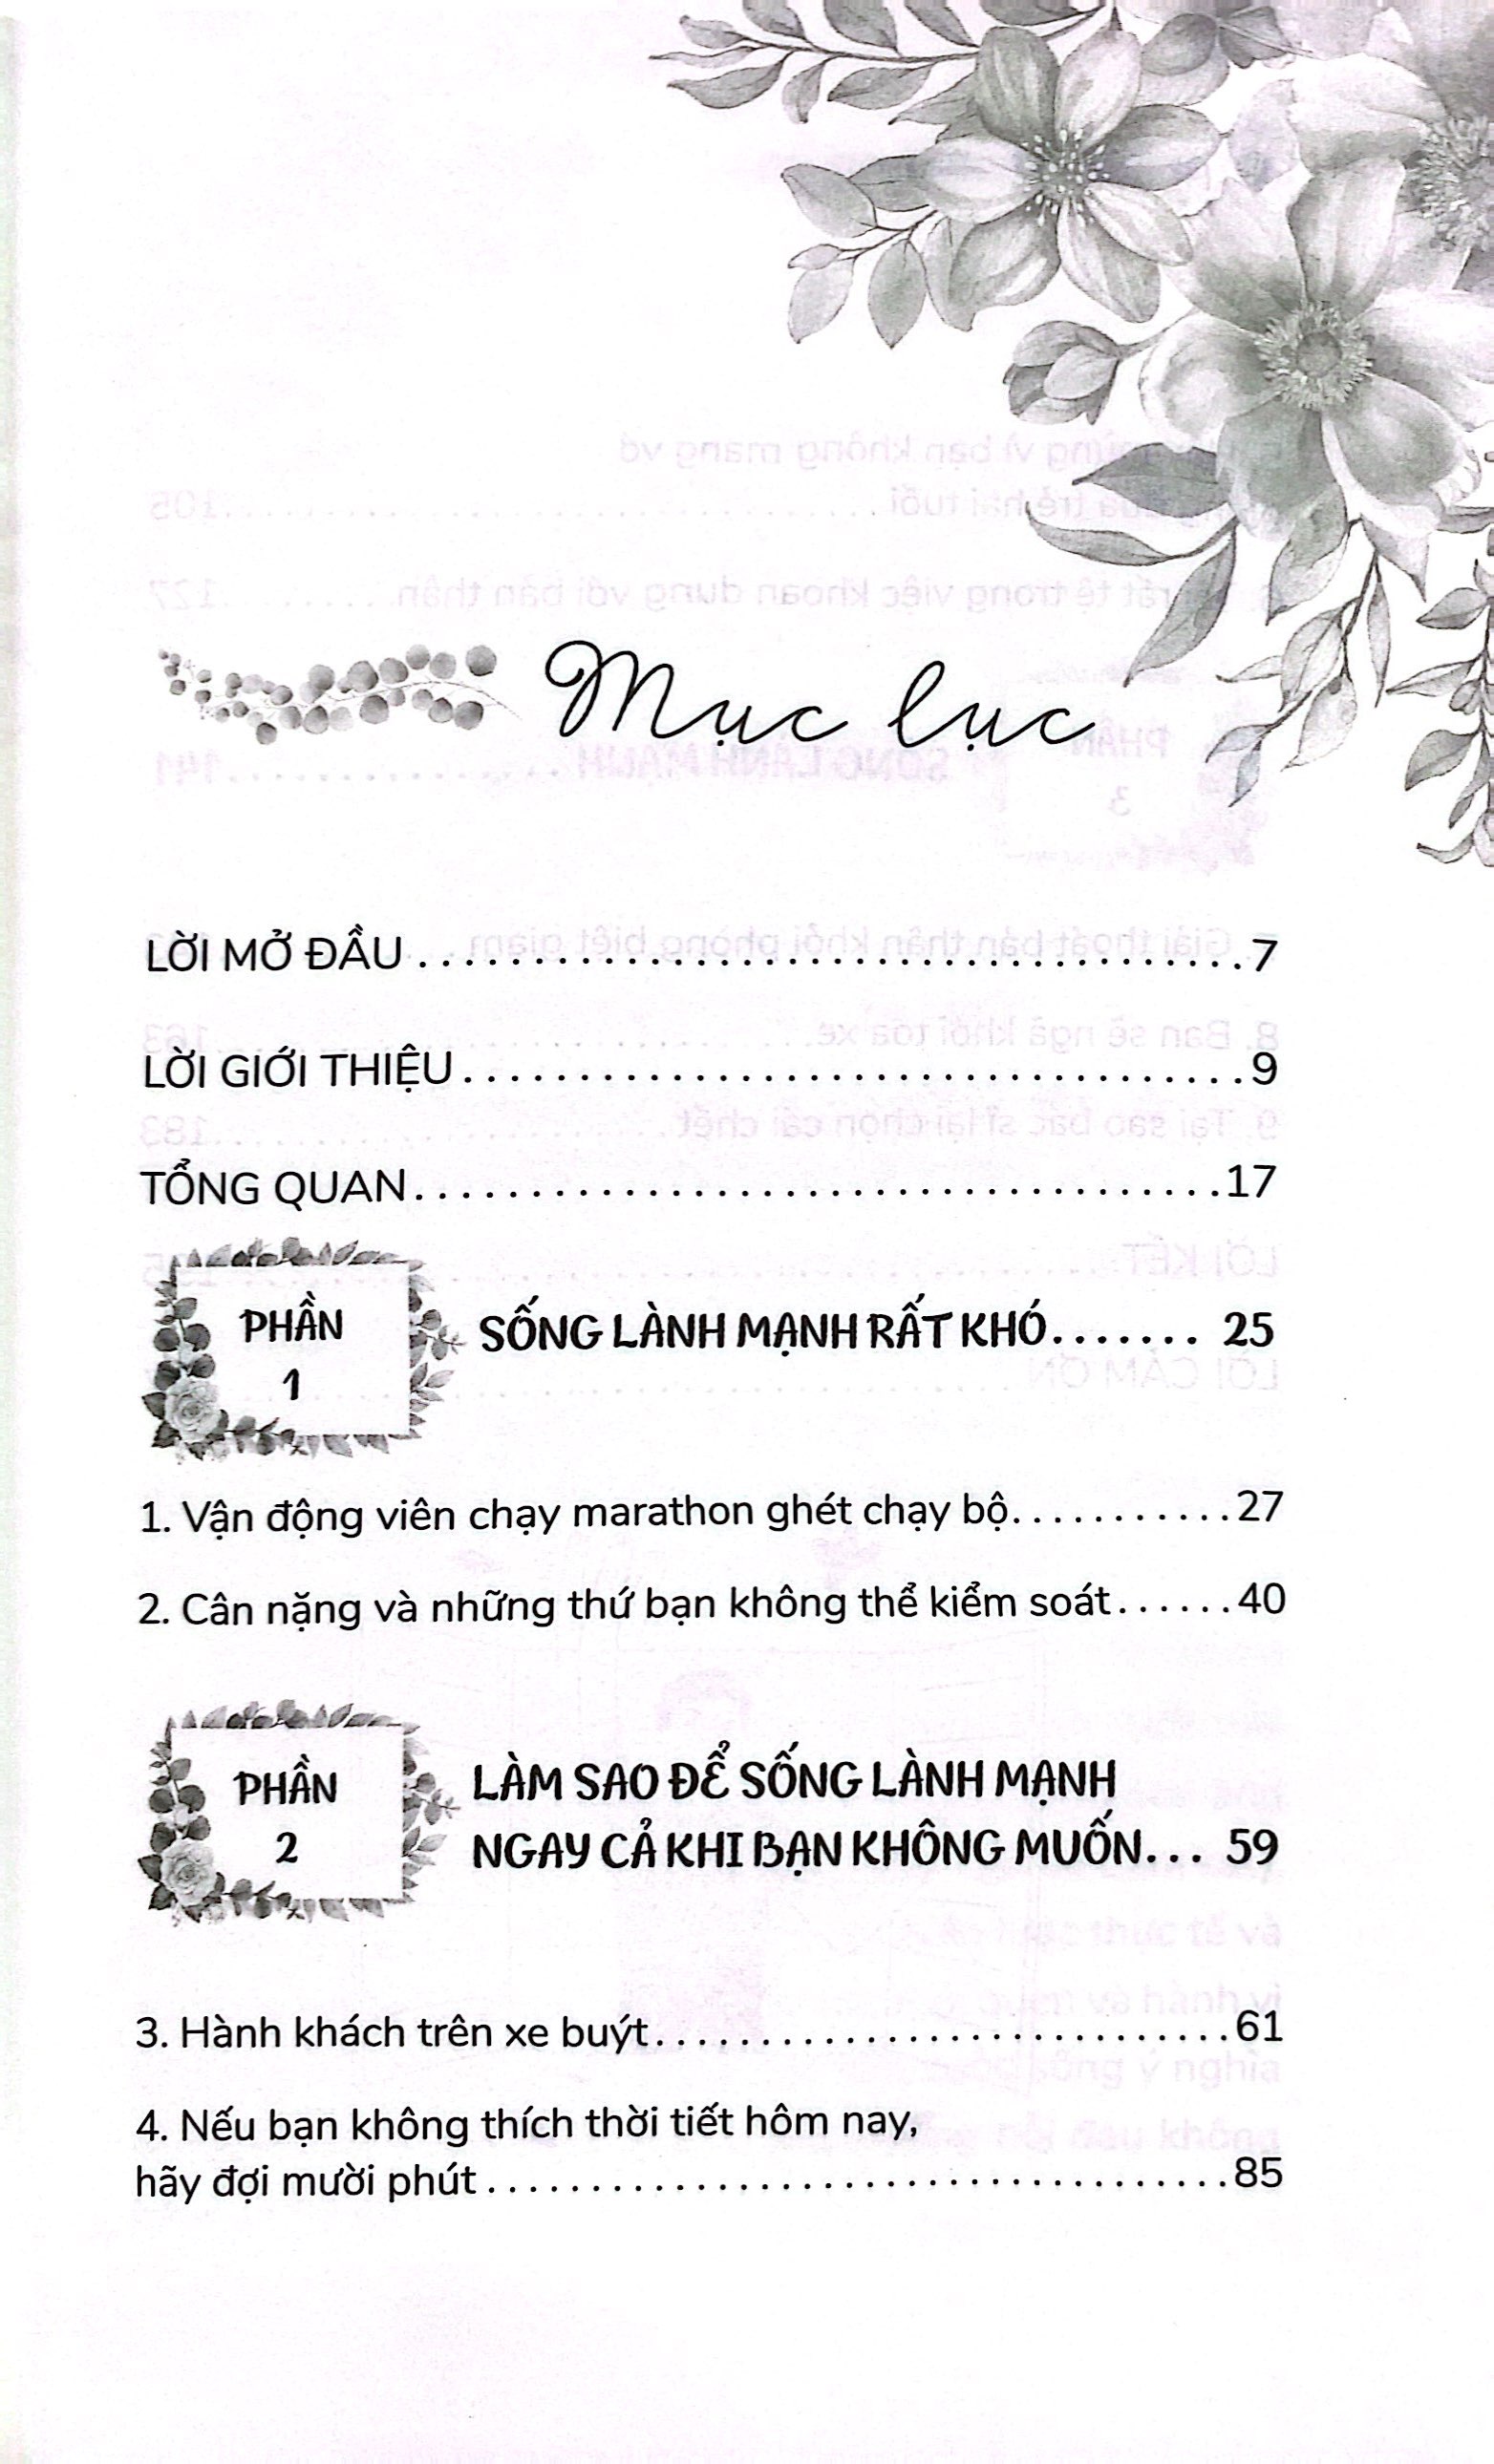 Mục lục
LỜI MỞ ĐẦU........................................7
LỜI GIỚI THIỆU........................................9
TỔNG QUAN........................................17
PHẦN
1
SỐNG LÀNH MẠNH RẤT KHÓ....... 25
1. Vận động viên chạy marathon ghét chạy bộ...........27
2. Cân nặng và những thứ bạn không thể kiểm soát......40
PHẦN
2
LÀM SAO ĐỂ SỐNG LÀNH MẠNH
NGAY CẢ KHI BẠN KHÔNG MUỐN... 59
3. Hành khách trên xe buýt............................61
4. Nếu bạn không thích thời tiết hôm nay,
hãy đợi mười phút....................................85